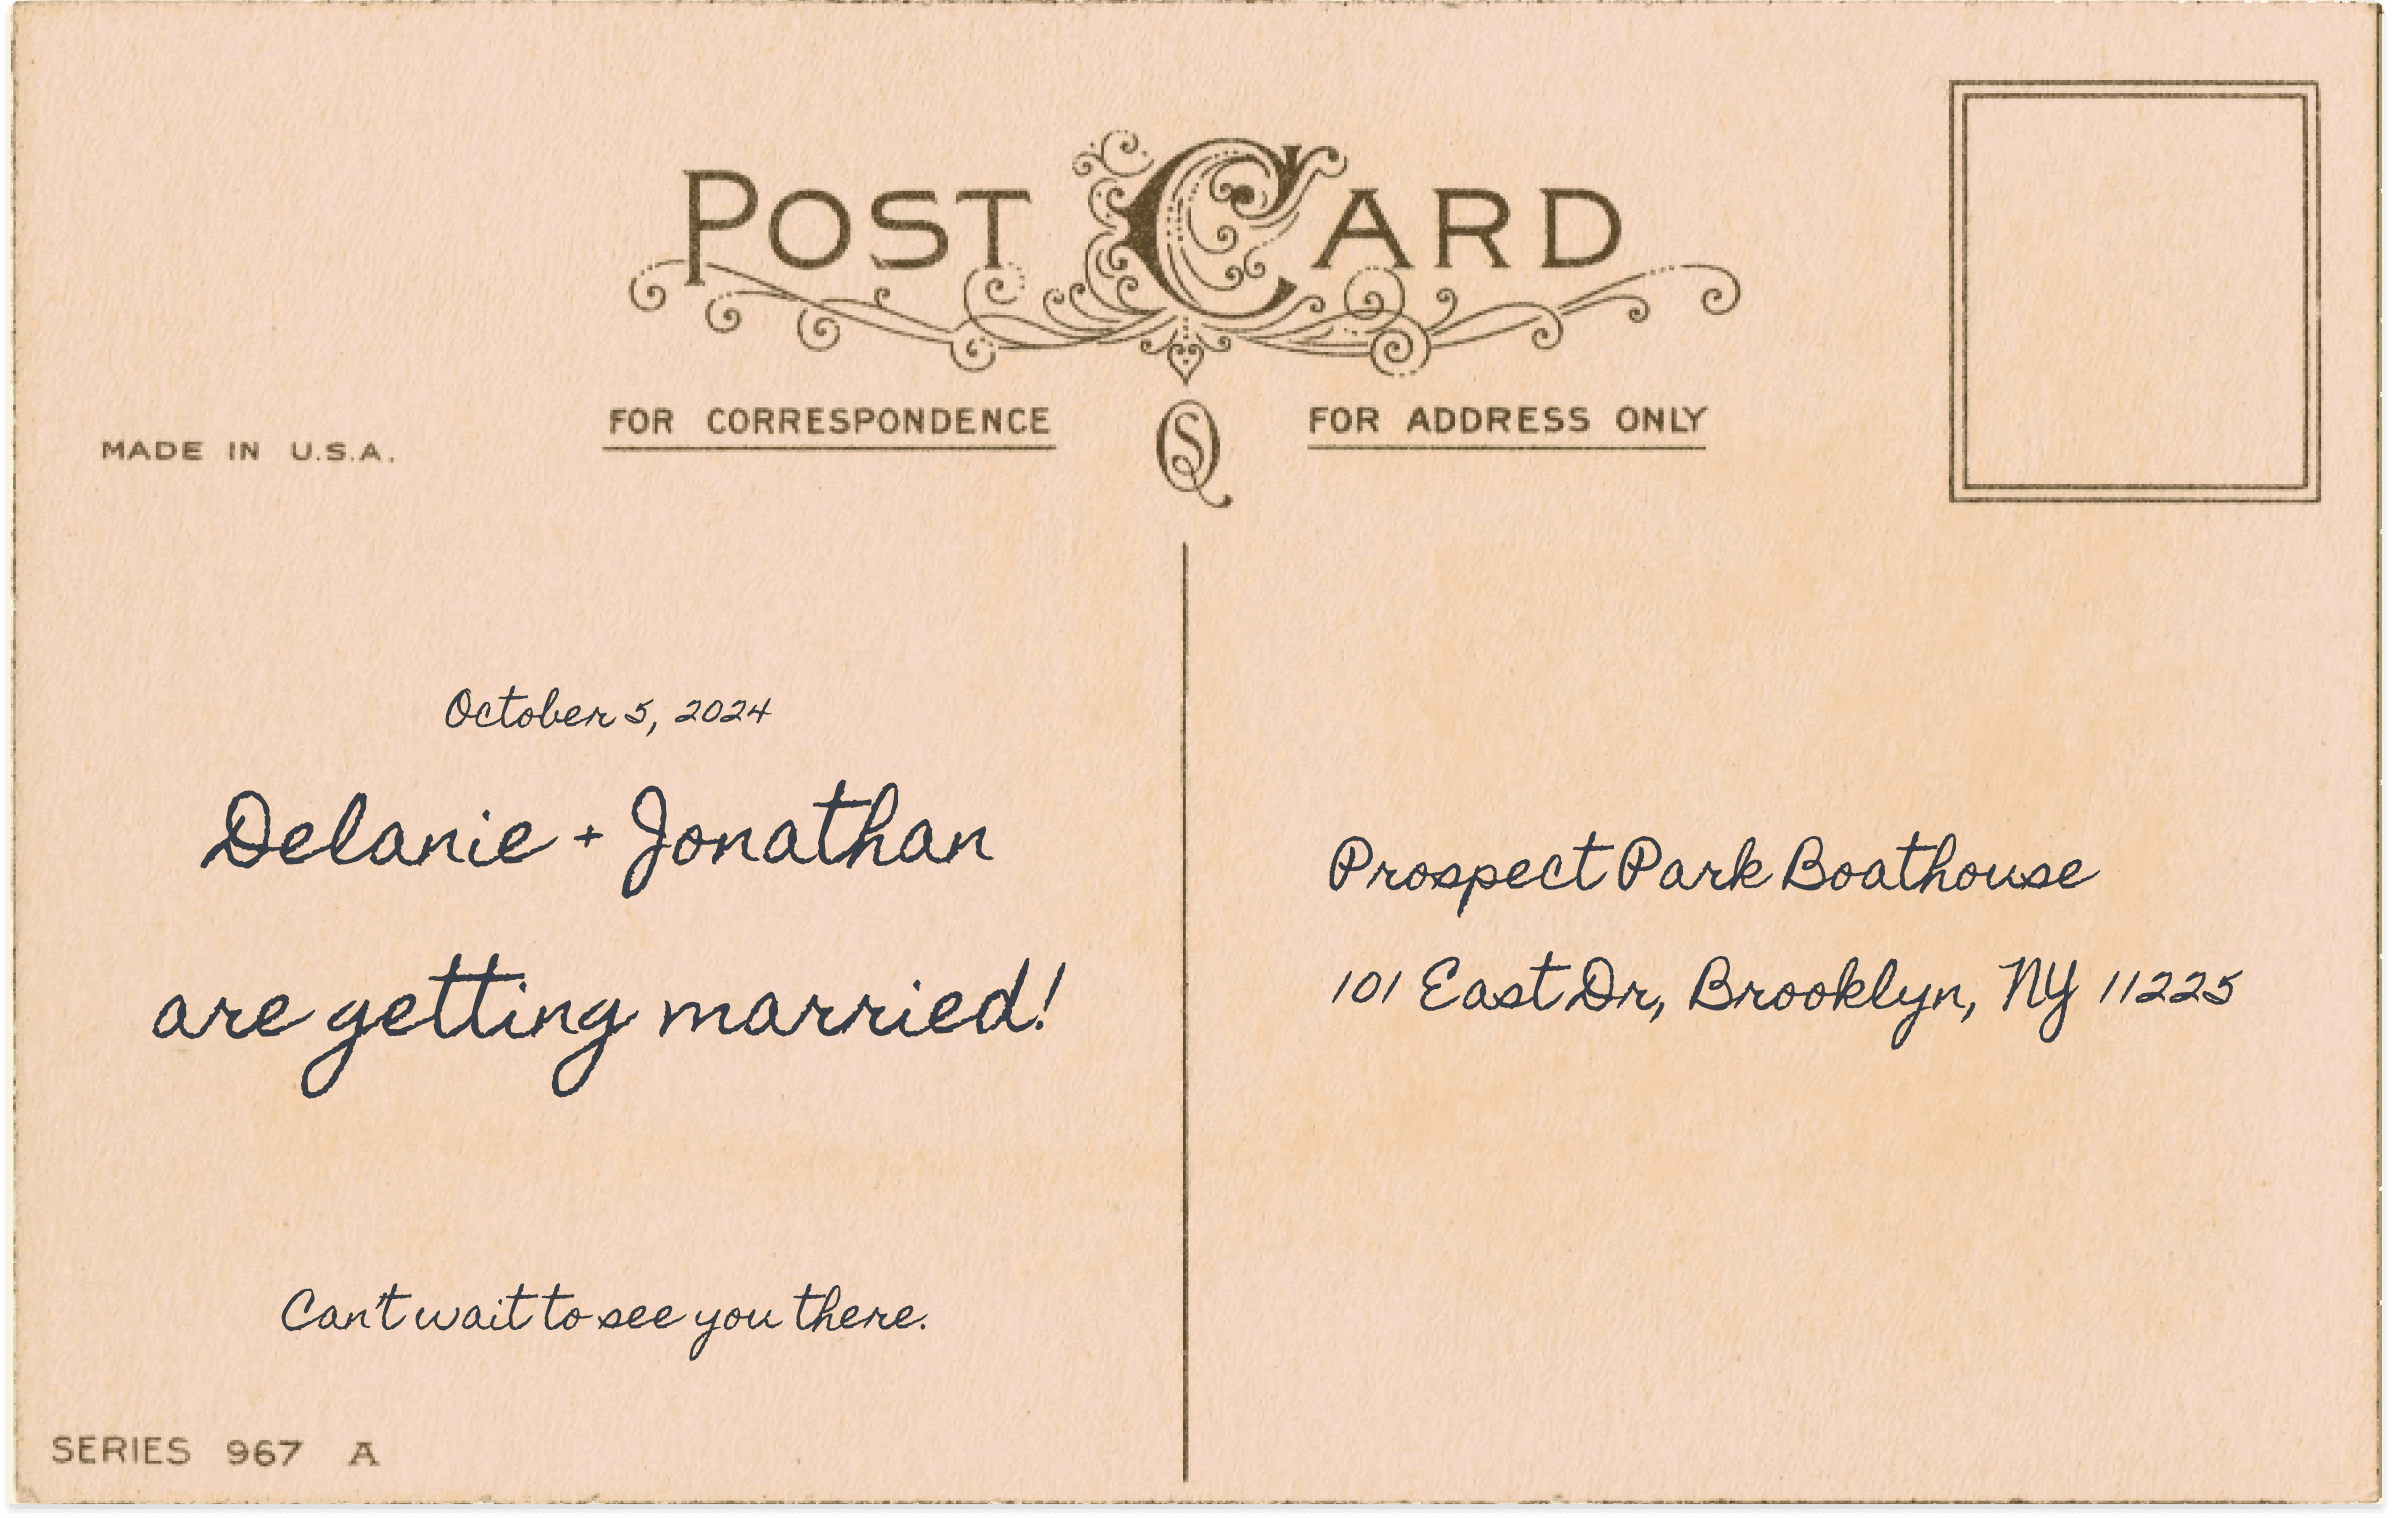 POST CARD
FOR CORRESPONDENCE
FOR ADDRESS ONLY
MADE IN U.S.A.
October 5, 2024
Delanie + Jonathan
are getting married!
Can't wait to see you there.
Prospect Park Boathouse
101 East Dr, Brooklyn, NY 11225
SERIES 967 A